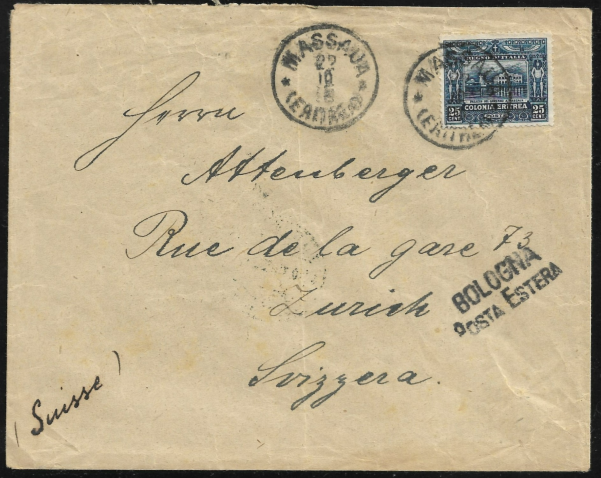 MASSAUA
22
10
15
(ERITREA)
MASSAUA
(ERITREA)
REGNO D'ITALIA
25 CENT
COLONIA ERITREA
POSTE
25 CENT
Herrn
Attenberger
Rue de la gare 73
Zurich
Svizzera.
BOLOGNA
POSTA ESTERA
(Suisse)